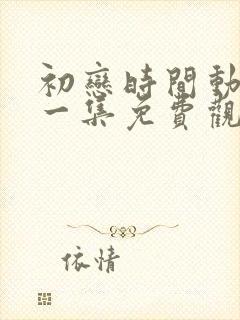 初戀時間動
一集免費觀
依情